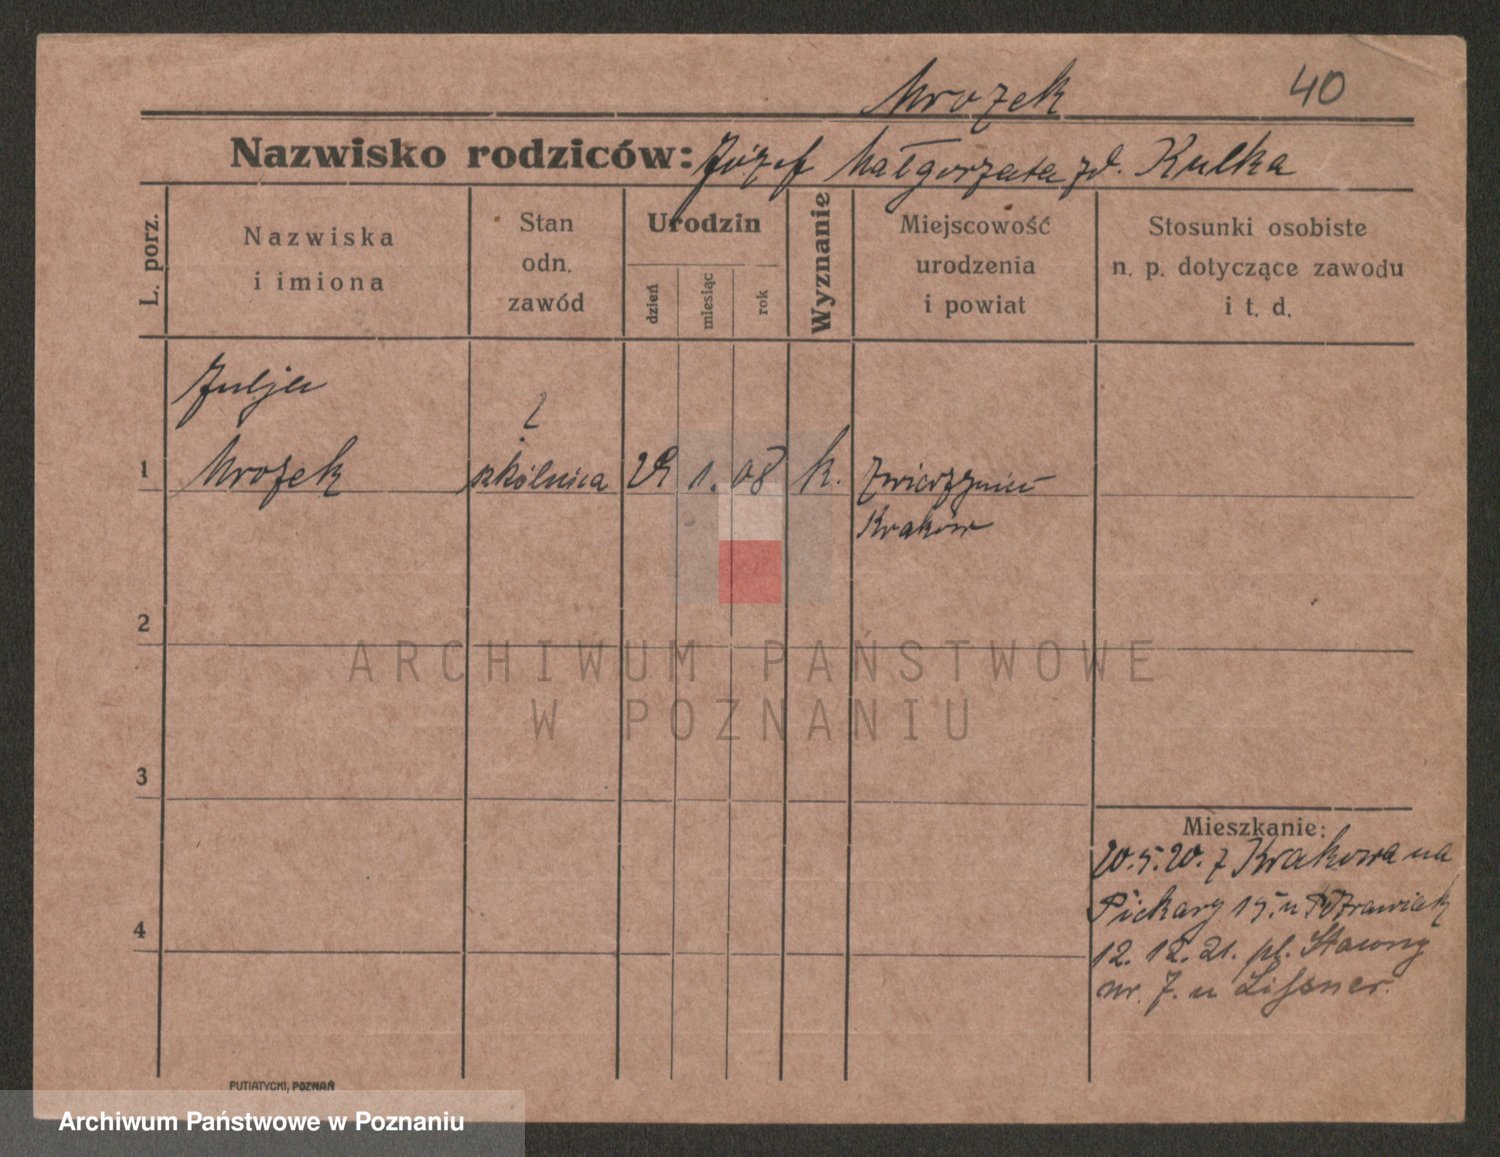 Mrozek
40
Nazwisko rodziców: Józef Małgorzata zd. Kulka
L. porz.
Nazwiska
i imiona
Stan
odn.
zawód
Urodzin
dzień
miesiąc
rok
Wyznanie
Miejscowość
urodzenia
i powiat
Stosunki osobiste
n. p. dotyczące zawodu
i t. d.
Julja
1 Mrozek szkólnica 29 1. 08 k. Zwierzyniec
Kraków
2
3
4
Mieszkanie:
20.5.20. z Krakowa na
Piekary 15. u
12. 12. 21. pl. Stawny
nr. 7. u Lissner.
PUTIATYCKI, POZNAŃ
ARCHIWUM PAŃSTWOWE
W POZNANIU
Archiwum Państwowe w Poznaniu